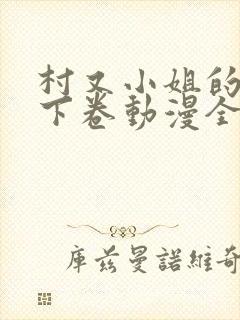 村又小姐的
下卷動漫全
庫茲曼諾維奇